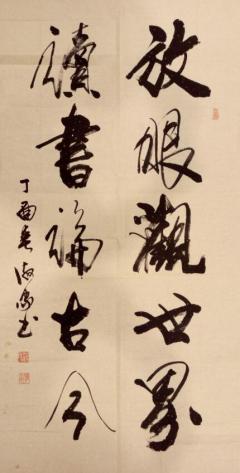 放眼觀世界
讀書論古今
丁酉春